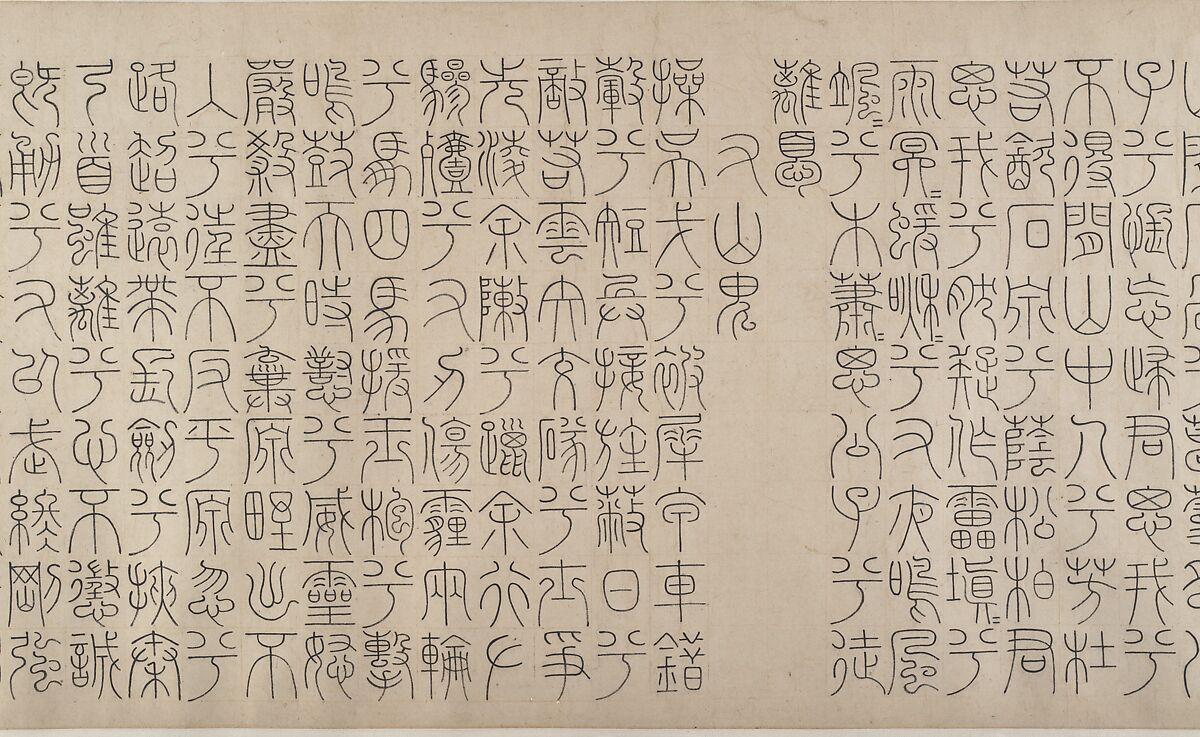 子兮悵忘歸君思我兮
不得閒山中人兮芳杜
若飲石泉兮蔭松柏君
思我兮然疑作雷填=兮
雨冥=猨啾=兮又夜鳴風
颯=兮木蕭=思公子兮徒
離憂
右山鬼
操吳戈兮被犀甲車錯
轂兮短兵接旌蔽日兮
敵若雲矢交隊兮士爭
先凌余陳兮躐余行左
驂殪兮右刃傷霾兩輪
兮馽四馬援玉枹兮擊
鳴鼓天時懟兮威靈怒
嚴殺盡兮棄原野出不
入兮往不反平原忽兮
路超遠帶長劍兮挾秦
弓首雖離兮心不懲誠
既勇兮又以武終剛強